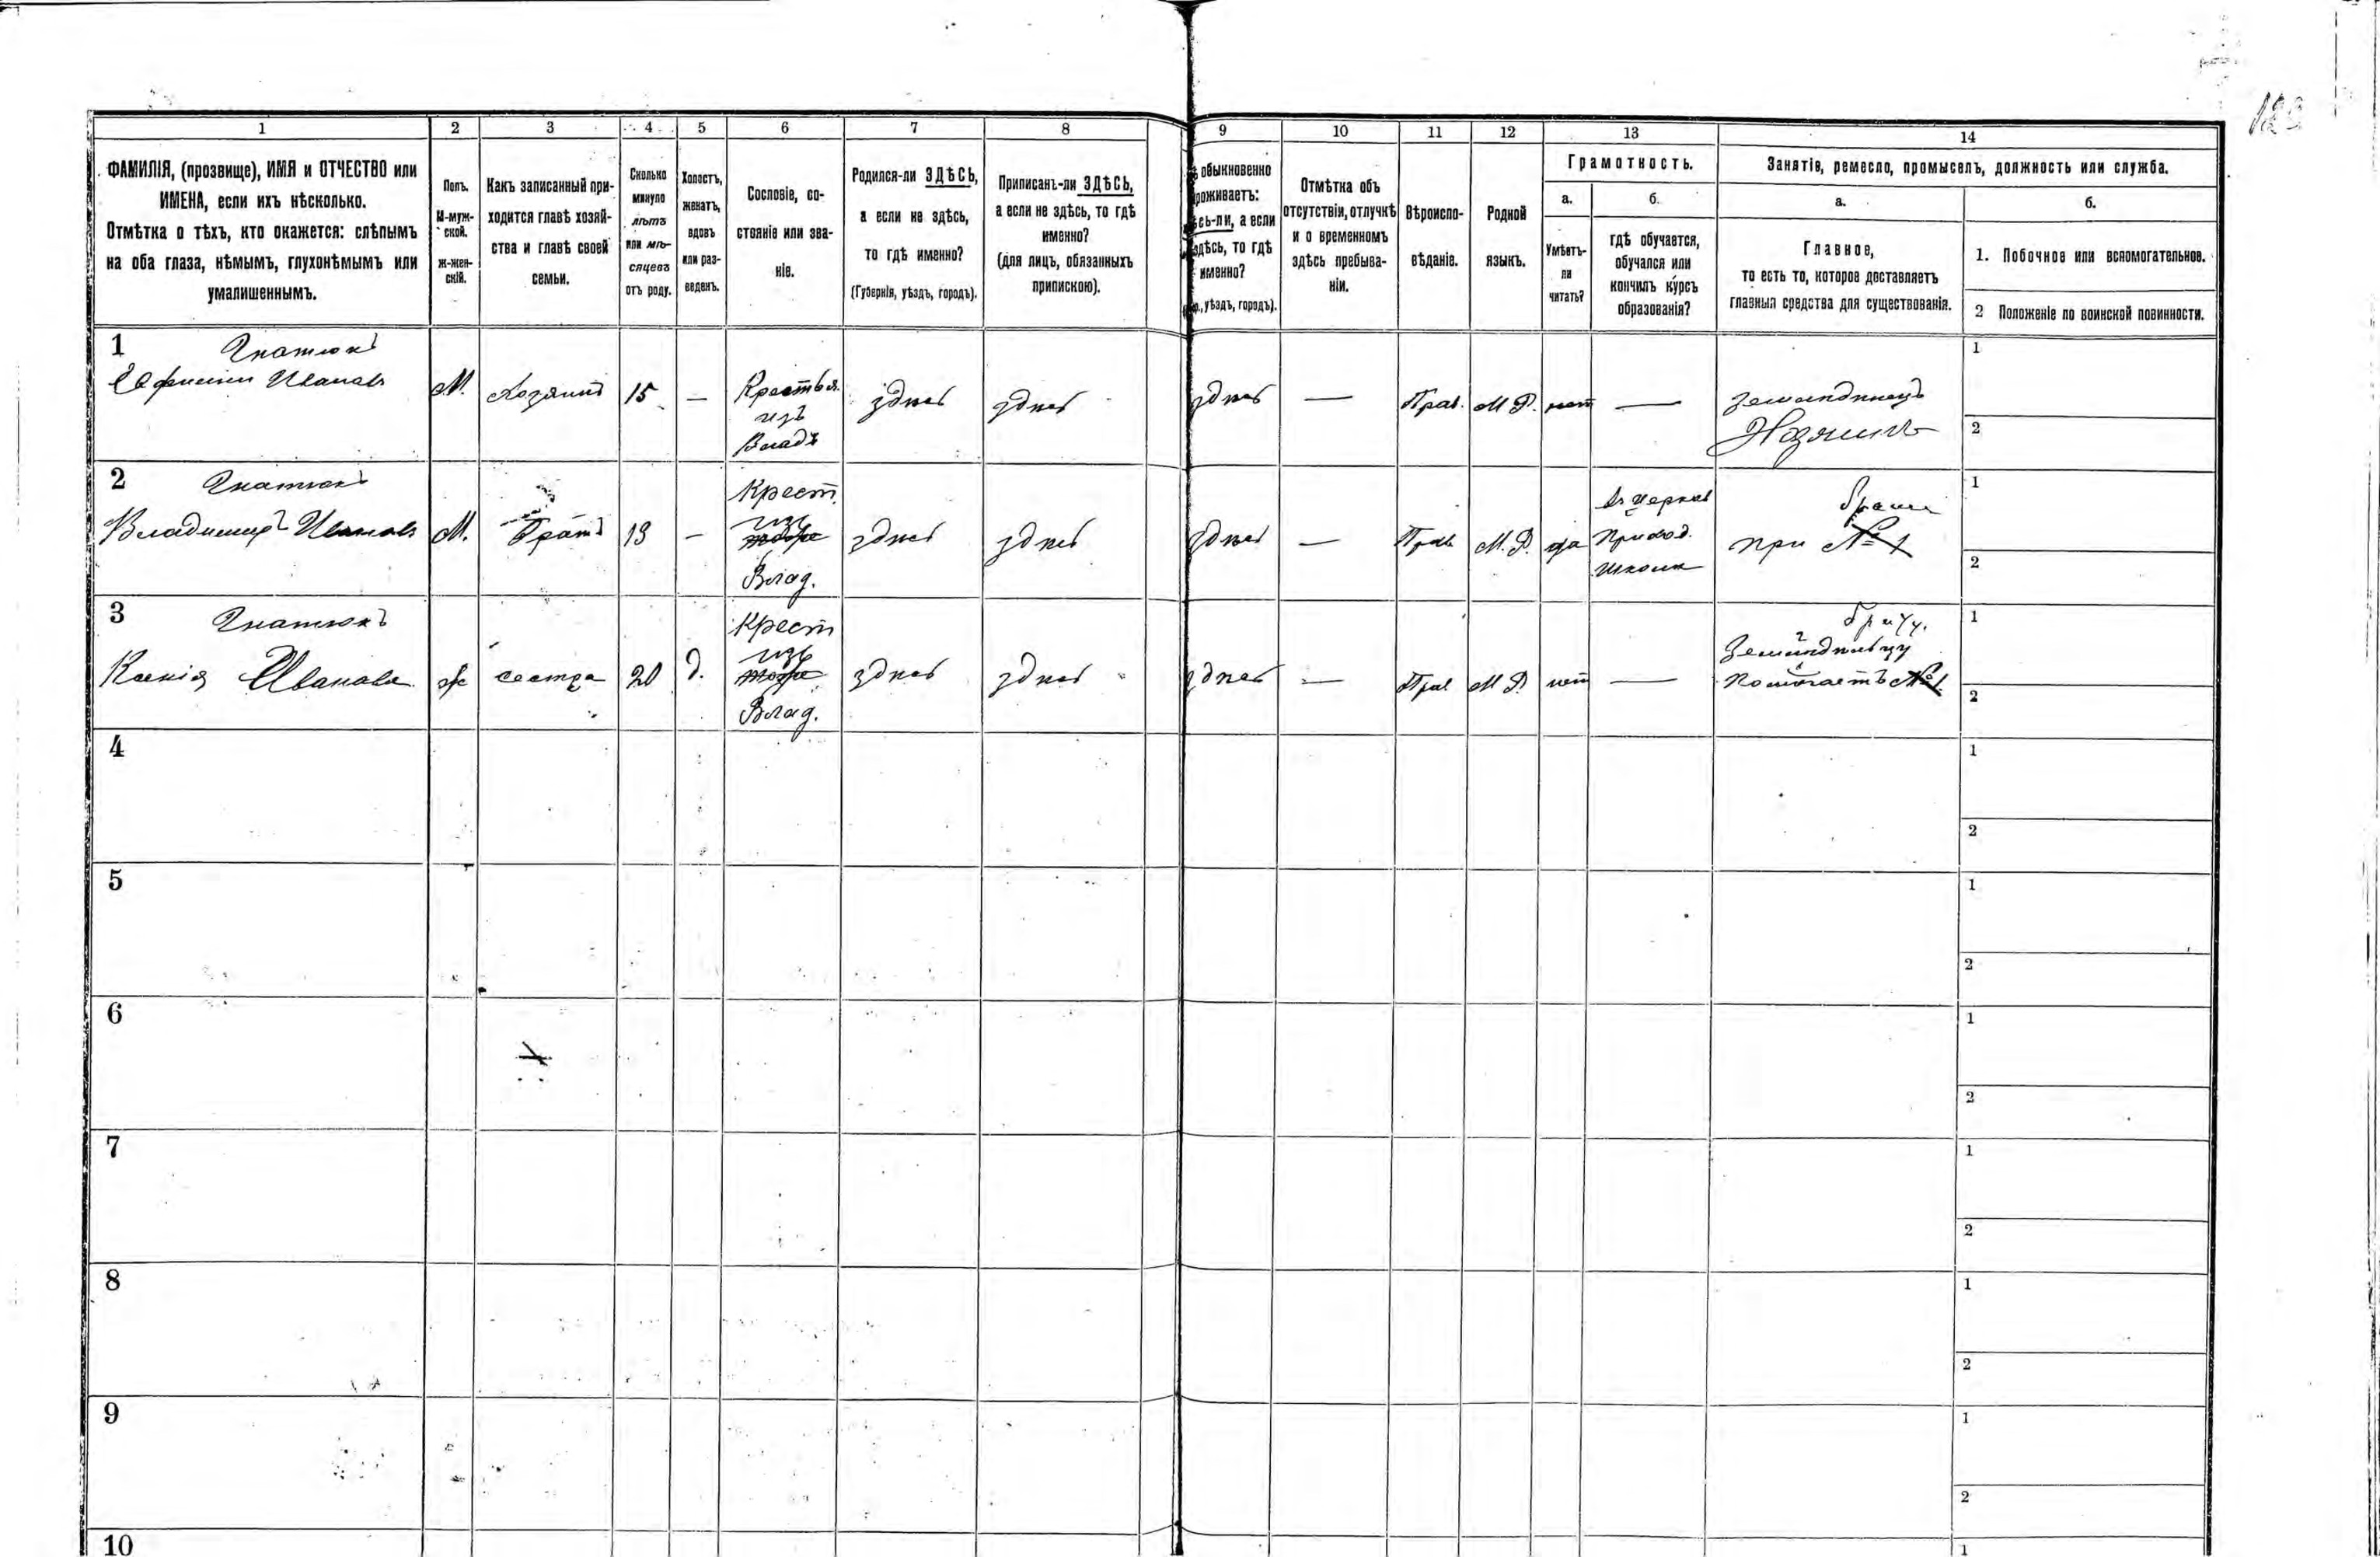 123
1 2 3 4 5 6 7 8 9 10 11 12 13 14
ФАМИЛІЯ, (прозвище), ИМЯ и ОТЧЕСТВО или
ИМЕНА, если ихъ нѣсколько.
Отмѣтка о тѣхъ, кто окажется: слѣпымъ
на оба глаза, нѣмымъ, глухонѣмымъ или
умалишеннымъ.
Полъ.
М-муж-
ской.
Ж-жен-
скій.
Какъ записанный при-
ходится главѣ хозяй-
ства и главѣ своей
семьи.
Сколько
минуло
лѣтъ
или мѣ-
сяцевъ
отъ роду.
Холостъ,
женатъ,
вдовъ
или раз-
веденъ.
Сословіе, со-
стояніе или зва-
ніе.
Родился-ли ЗДѢСЬ,
а если не здѣсь,
то гдѣ именно?
(Губернія, уѣздъ, городъ).
Приписанъ-ли ЗДѢСЬ,
а если не здѣсь, то гдѣ
именно?
(для лицъ, обязанныхъ
припискою).
обыкновенно
роживаетъ:
сь-ли, а если
здѣсь, то гдѣ
именно?
уѣздъ, городъ).
Отмѣтка объ
отсутствіи, отлучкѣ
и о временномъ
здѣсь пребыва-
ніи.
Вѣроиспо-
вѣданіе.
Родной
языкъ.
Грамотность.
а.
Умѣетъ-
ли
читать?
б.
гдѣ обучается,
обучался или
кончилъ курсъ
образованія?
Занятіе, ремесло, промыселъ, должность или служба.
а.
Главное,
то есть то, которое доставляетъ
главныя средства для существованія.
б.
1. Побочное или вспомогательное.
2 Положеніе по воинской повинности.
1 Гнатюкъ
Иванов М. Хозяинъ 15 — Крестья. здѣсь здѣсь здѣсь — Прав. М Р. нет — земледѣлецъ 1
изъ Хозяинъ 2
Владѣ
2 Гнатюкъ Крест. въ церков брат 1
Владимиръ Иванов М. Братъ 13 — изъ здѣсь здѣсь здѣсь — Прав М. Р. да приход. при № 1 2
Влад. школѣ
3 Гнатюкъ Крест 1
Ксенія Иванова ж сестра 20 д. изъ здѣсь здѣсь здѣсь — Прав М Р. нет — земледѣльцу
Влад. помогаетъ №1. 2
4 1
2
5 1
2
6 1
2
7 1
2
8 1
2
9 1
2
10 1